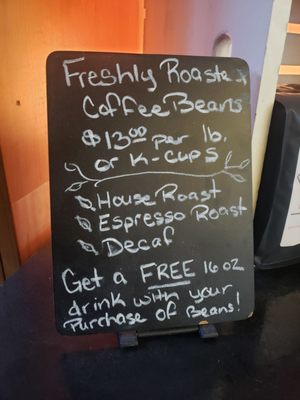 Freshly Roasted
Coffee Beans
$13.00 per lb.
or K-cups
House Roast
Espresso Roast
Decaf
Get a FREE 16 oz
drink with your
Purchase of Beans!